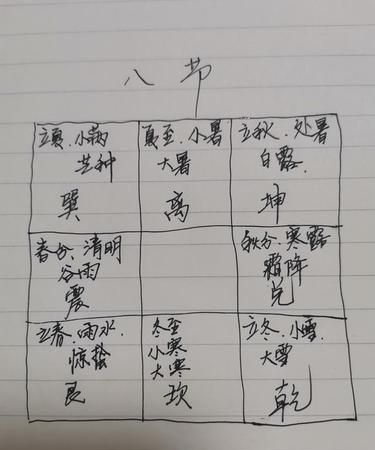 八节
立夏、小满
芒种
巽
夏至、小暑
大暑
离
立秋、处暑
白露
坤
春分、清明
谷雨
震
秋分、寒露
霜降
兑
立春、雨水、
惊蛰
艮
冬至
小寒
大寒
坎
立冬、小雪、
大雪
乾